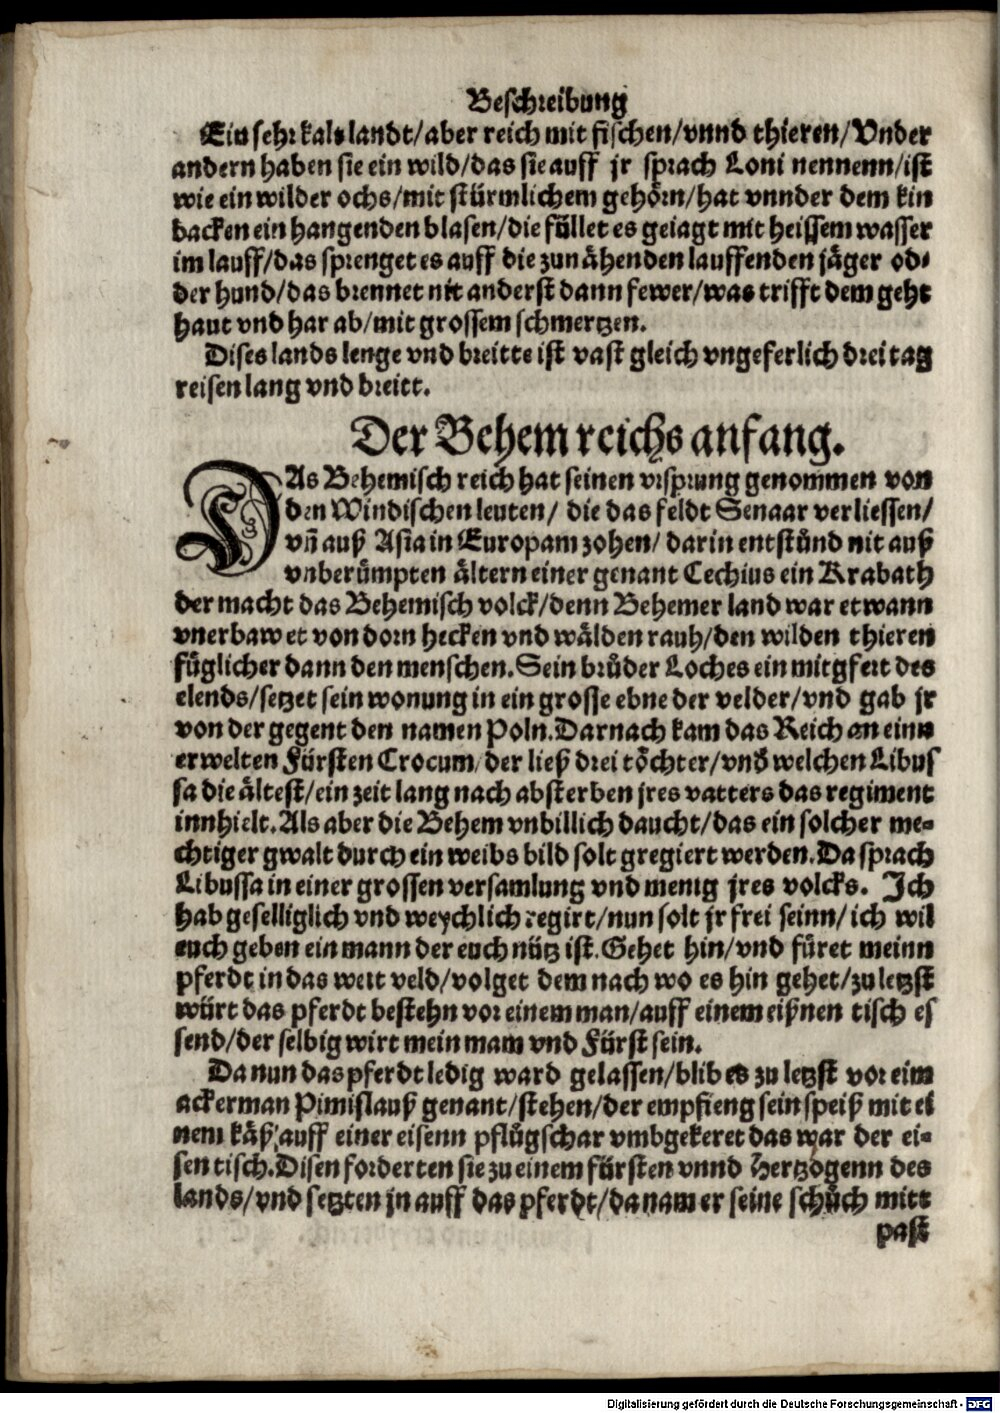 Beschreibung
Ein sehr kalt landt/aber reich mit fischen/vnnd thieren/Vnder
andern haben sie ein wild/das sie auff jr sprach Loni nennenn/ist
wie ein wilder ochs/mit stürmlichem gehörn/hat vnnder dem kin
backen ein hangenden blasen/die füllet es geiagt mit heissem wasser
im lauff/das sprenget es auff die zun ähenden lauffenden jäger od⸗
der hund/das brennet nit anderst dann fewer/was trifft dem geht
haut vnd har ab/mit grossem schmertzen.
Dises lands lenge vnd breitte ist vast gleich vngeferlich drei tag
reisen lang vnd breitt.
Der Behem reichs anfang.
DAs Behemisch reich hat seinen vrsprung genommen von
den Windischen leuten/ die das feldt Senaar verliessen/
vñ auß Asia in Europam zohen/ darin entstůnd nit auß
vnberümpten ältern einer genant Cechius ein Krabath
der macht das Behemisch volck/denn Behemer land war etwann
vnerbawet von dorn hecken vnd wälden rauh/den wilden thieren
füglicher dann den menschen. Sein brůder Loches ein mitgfert des
elends/setzet sein wonung in ein grosse ebne der velder/vnd gab jr
von der gegent den namen Poln. Darnach kam das Reich an einn
erwelten Fürsten Crocum/ der ließ drei töchter/vnd̓ welchen Libus
sa die ältest/ein zeit lang nach absterben jres vatters das regiment
innhielt. Als aber die Behem vnbillich daucht/das ein solcher me⸗
chtiger gwalt durch ein weibs bild solt gregiert werden. Da sprach
Libussa in einer grossen versamlung vnd menig jres volcks. Ich
hab geselliglich vnd weychlich regirt/nun solt jr frei seinn/ich wil
euch geben ein mann der euch nütz ist. Gehet hin/vnd füret meinn
pferdt in das weit veld/volget dem nach wo es hin gehet/zu letzst
würt das pferdt bestehn vor einem man/auff einem eißnen tisch es
send/der selbig wirt mein mam vnd Fürst sein.
Da nun das pferdt ledig ward gelassen/blib es zu letzst vor eim
ackerman Pimislauß genant/stehen/der empfieng sein speiß mit ei
nem käß/auff einer eisenn pflůgschar vmbgekeret das war der ei⸗
sen tisch. Disen forderten sie zu einem fürsten vnnd Hertzogenn des
lands/vnd setzten jn auff das pferdt/da nam er seine schůch mitt
past
Digitalisierung gefördert durch die Deutsche Forschungsgemeinschaft - DFG